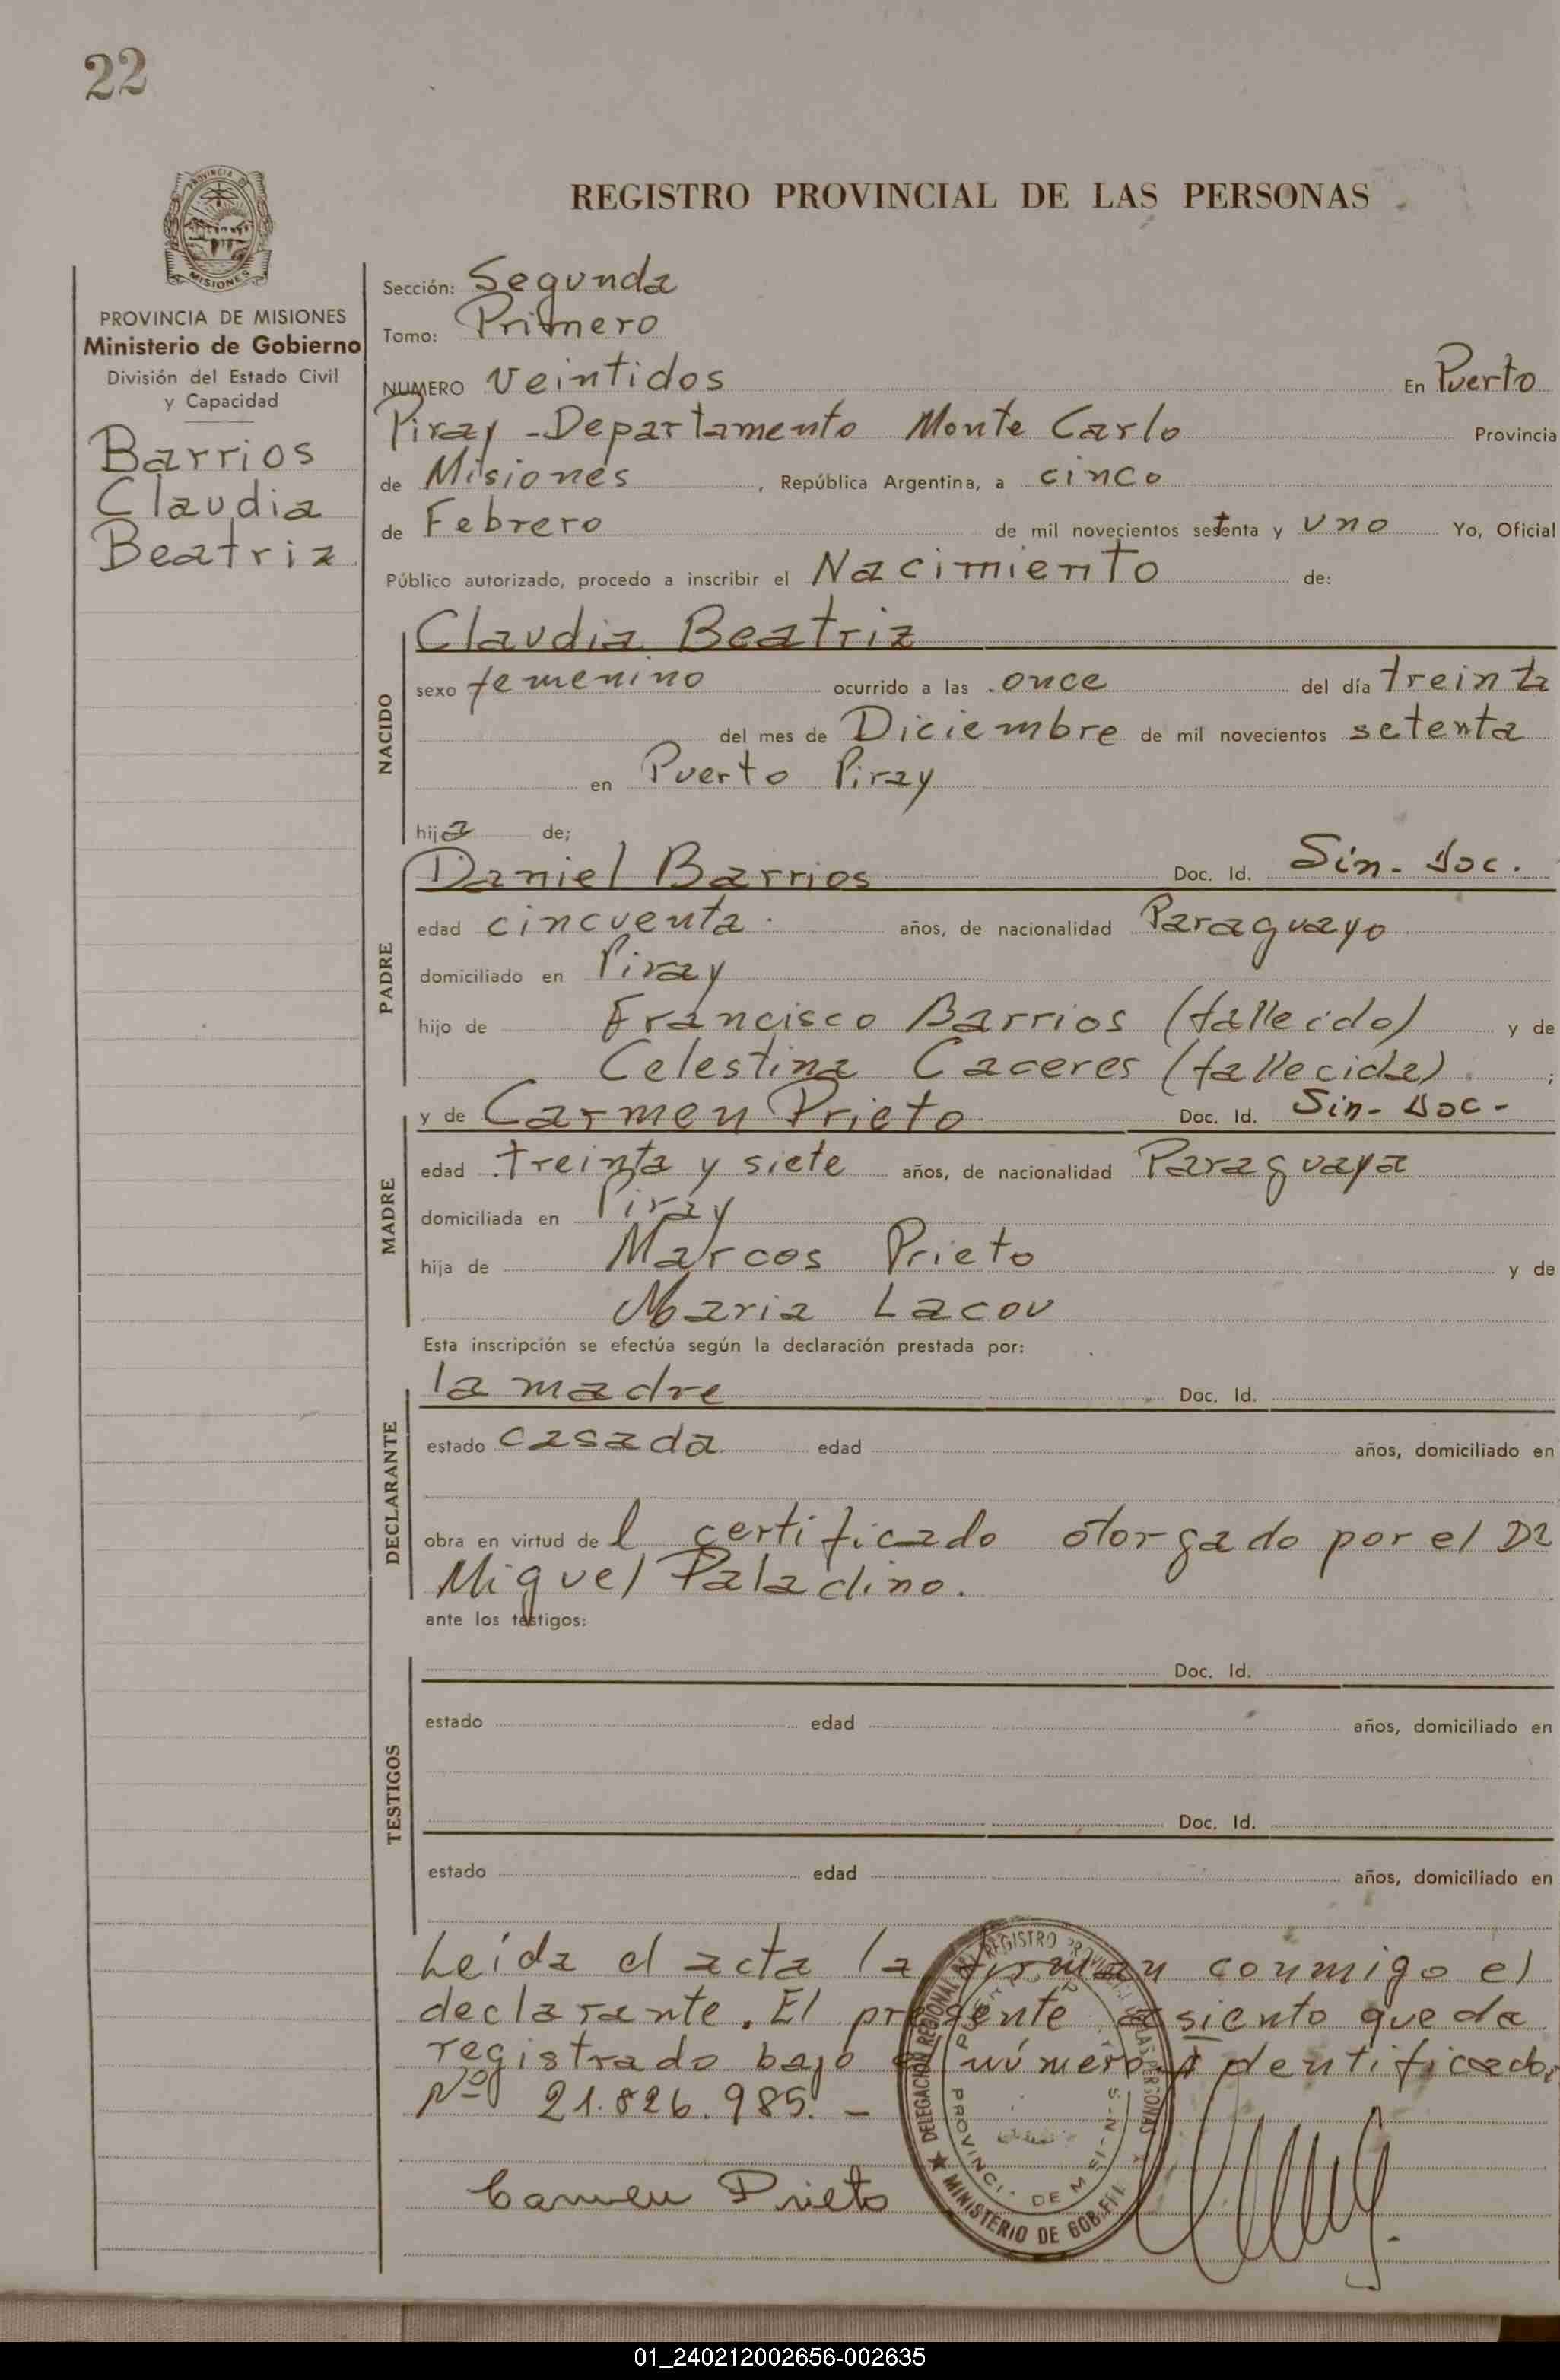 22
PROVINCIA DE
MISIONES
REGISTRO PROVINCIAL DE LAS PERSONAS
PROVINCIA DE MISIONES
Ministerio de Gobierno
División del Estado Civil
y Capacidad
Barrios
Claudia
Beatriz
Sección: Segunda
Tomo: Primero
NUMERO Veintidos En Puerto
Piray - Departamento Monte Carlo Provincia
de Misiones, República Argentina, a cinco
de Febrero de mil novecientos setenta y uno Yo, Oficial
Público autorizado, procedo a inscribir el Nacimiento de:
NACIDO
Claudia Beatriz
sexo femenino ocurrido a las once del día treinta
del mes de Diciembre de mil novecientos setenta
en Puerto Piray
hija de;
PADRE
Daniel Barrios Doc. Id. Sin- Doc.
edad cincuenta años, de nacionalidad Paraguayo
domiciliado en Piray
hijo de Francisco Barrios (fallecido) y de
Celestina Caceres (fallecida) ;
MADRE
y de Carmen Prieto Doc. Id. Sin- Doc-
edad treinta y siete años, de nacionalidad Paraguaya
domiciliada en Piray
hija de Marcos Prieto y de
Maria Lacou
Esta inscripción se efectúa según la declaración prestada por:
DECLARANTE
la madre Doc. Id.
estado casada edad años, domiciliado en
obra en virtud del certificado otorgado por el Dr
Miguel Paladino.
ante los testigos:
TESTIGOS
Doc. Id.
estado edad años, domiciliado en
Doc. Id.
estado edad años, domiciliado en
Leída el acta la firman conmigo el
declarante. El presente asiento queda
registrado bajo el número identificado
Nº 21.826.985. -
Carmen Prieto
DELEGACION REGIONAL DEL REGISTRO PROVINCIAL DE LAS PERSONAS
MINISTERIO DE GOB.
PROVINCIA DE MISIONES
01_240212002656-002635